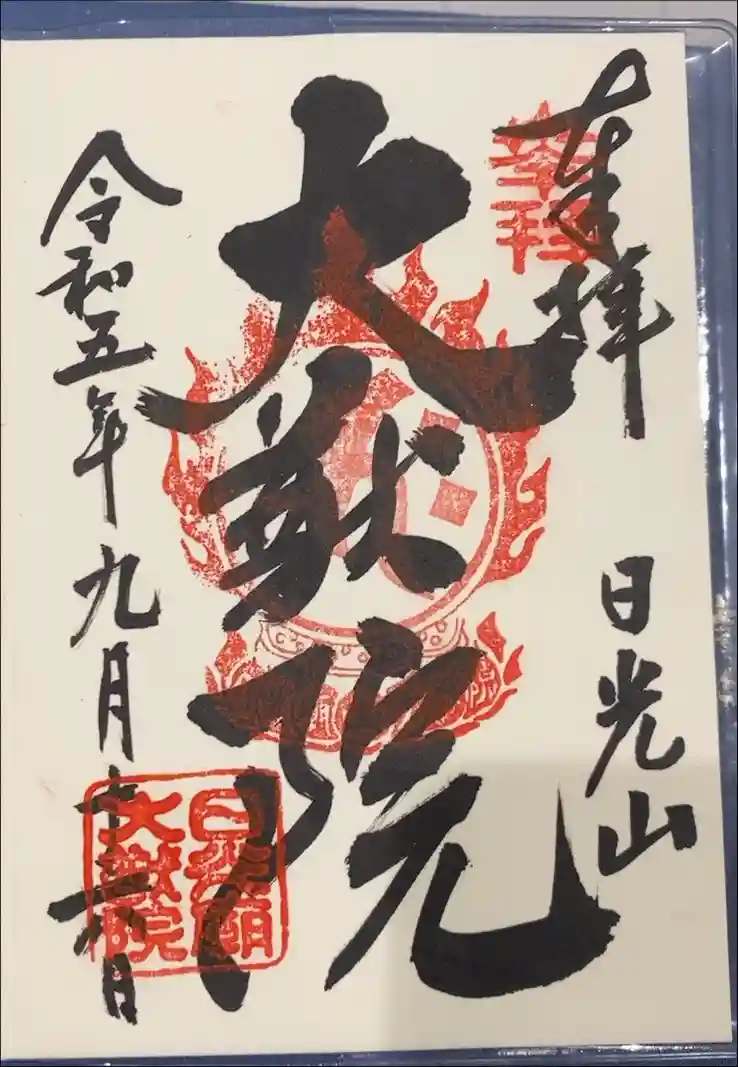 奉拝
奉拝
日光山
大猷院
令和五年九月十六日
日光廟
大猷院